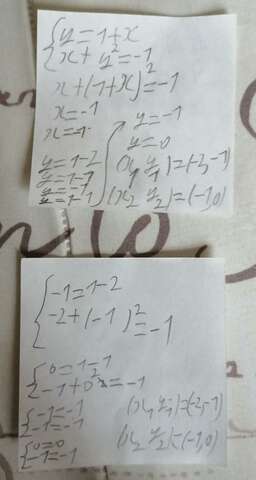 {y=1+x
{x+y²=-1
x+(1+x)²=-1
x=-1
y=-1
y=0
y=1-2
y=1-1
y=-1
y=1-1
(x₁ y₁)=(-2,-1)
(x₂ y₂)=(-1,0)
{-1=1-2
{-2+(-1)²=-1
{0=1-1
{-1+0²=-1
{-1=-1
{-1=-1
{0=0
{-1=-1
(x₁ y₁)=(-2,-1)
(x₂ y₂)=(-1,0)